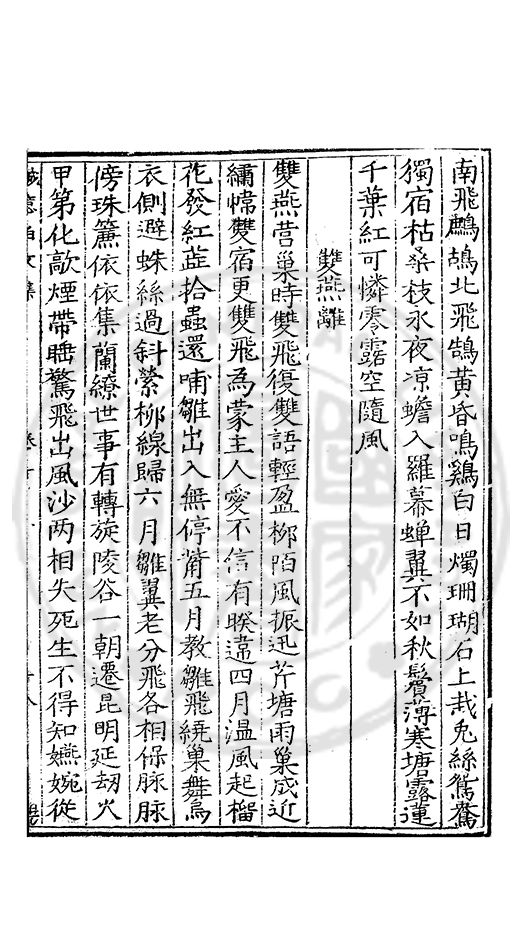 南飛鷓鴣北飛鵠黄昏鳴鷄白日燭珊瑚石上栽兎絲鴛鴦
獨宿枯桑枝永夜凉蟾入羅幕蝉翼不如秋鬢薄寒塘露蓮
千葉紅可憐零露空隨風
雙燕離
雙燕営巢時雙飛復雙語輕盈柳陌風振迅芹塘雨巢成近
繡幃雙宿更雙飛為蒙主人愛不信有暌違四月温風起榴
花發紅蕋拾蟲還哺雛出入無停觜五月教雛飛繞巢舞烏
衣側避蛛絲過斜縈柳線歸六月雛翼老分飛各相保脉脉
傍珠簾依依集蘭繚世事有轉旋陵谷一朝遷昆明延劫火
甲第化歊煙帶睡驚飛出風沙两相失死生不得知嬿婉從
誠意伯文集